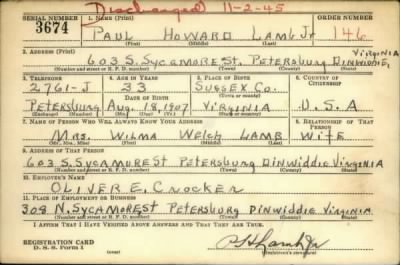 Discharged 11-2-45
SERIAL NUMBER 1. NAME (Print) ORDER NUMBER
3674 PAUL HOWARD LAMB Jr 146
(First) (Middle) (Last)
2. ADDRESS (Print) VIRGINIA
603 S. SYCAMORE St. PETERSBURG DINWIDDIE,
(Number and street or R. F. D. number) (Town) (County) (State)
3. TELEPHONE 4. AGE IN YEARS 5. PLACE OF BIRTH 6. COUNTRY OF CITIZENSHIP
2761-J 33 SUSSEX CO.
DATE OF BIRTH (Town or county)
PETERSBURG AUG. 18, 1907 VIRGINIA U.S.A
(Exchange) (Number) (Mo.) (Day) (Yr.) (State or country)
7. NAME OF PERSON WHO WILL ALWAYS KNOW YOUR ADDRESS 8. RELATIONSHIP OF THAT PERSON
MRS. WILMA WELCH LAMB WIFE
(Mr., Mrs., Miss) (First) (Middle) (Last)
9. ADDRESS OF THAT PERSON
603 S. SYCAMORE ST PETERSBURG DINWIDDIE VIRGINIA
(Number and street or R. F. D. number) (Town) (County) (State)
10. EMPLOYER'S NAME
OLIVER E. CROCKER
11. PLACE OF EMPLOYMENT OR BUSINESS
308 N. SYCAMORE ST PETERSBURG DINWIDDIE VIRGINIA
(Number and street or R. F. D. number) (Town) (County) (State)
I AFFIRM THAT I HAVE VERIFIED ABOVE ANSWERS AND THAT THEY ARE TRUE.
REGISTRATION CARD
D. S. S. Form 1
P H Lamb Jr
(Registrant's signature)